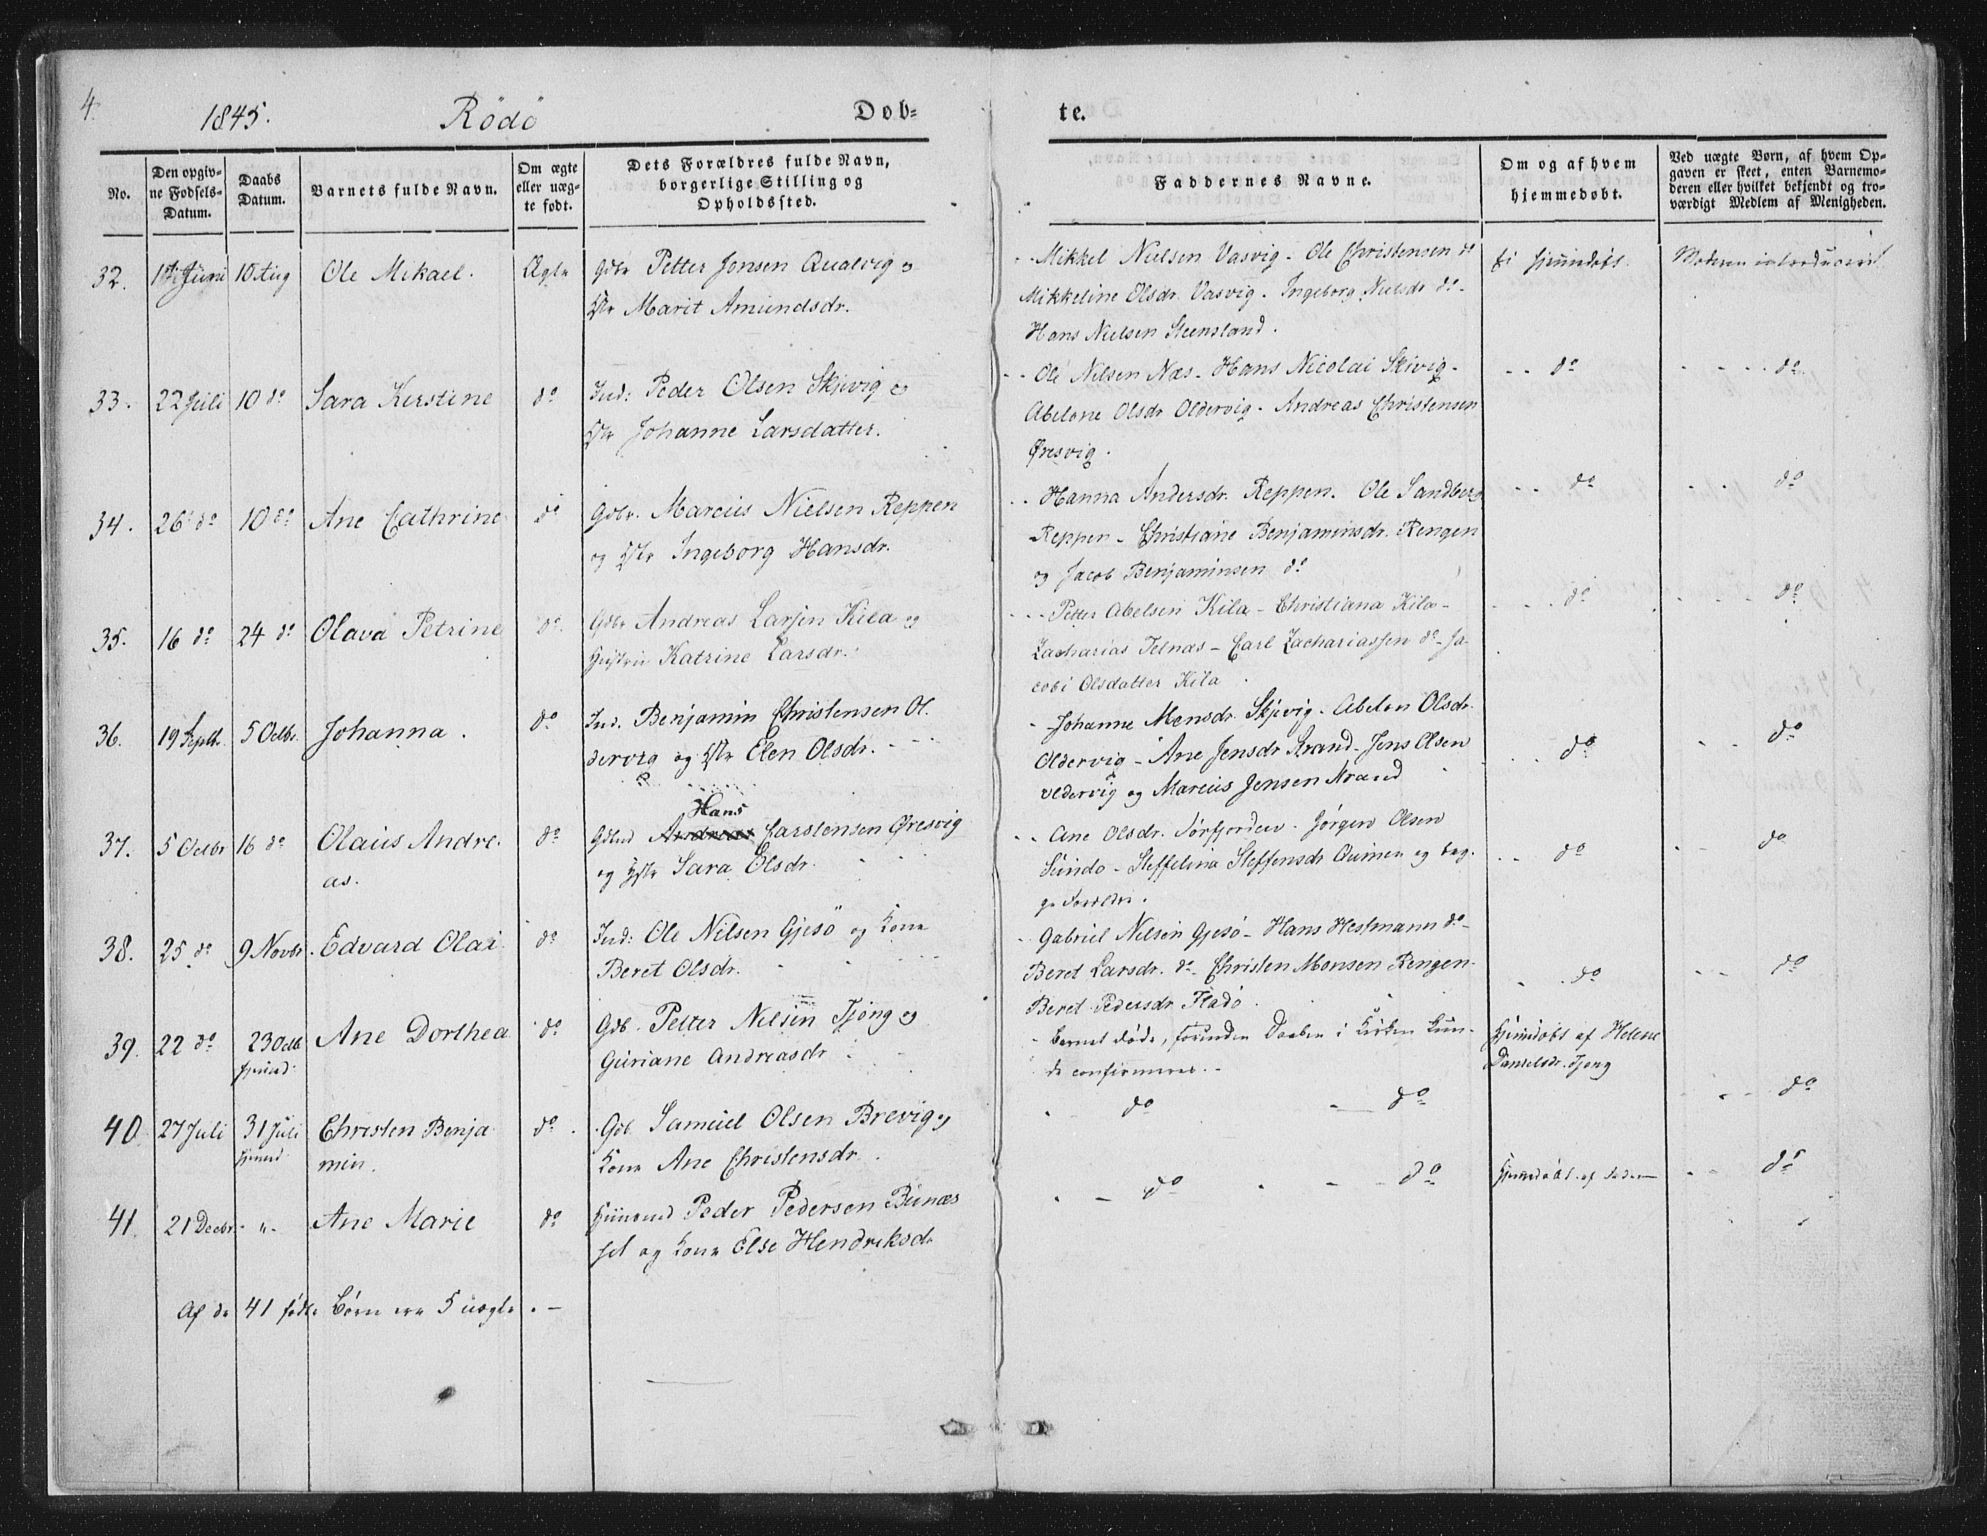 4.
1845.
Rödö
Dob-
te.
No.
Den opgiv-
ne Fødsels-
Datum.
Daabs
Datum.
Barnets fulde Navn.
Om ægte
eller uæg-
te født.
Dets Forældres fulde Navn,
borgerlige Stilling og
Opholdssted.
Faddernes Navne.
Om og af hvem
hjemmedøbt.
Ved uægte Børn, af hvem Op-
gaven er skeet, enten Barnemo-
deren eller hvilket bekjendt og tro-
værdigt Medlem af Menigheden.
32. Juni 10 Aug Ole Mikael. Ægte Gdbr Petter Jensen Qualvig og
Marit Amundsdr.
Mikkel Nielsen Vasvig - Ole Christensen do
Mikkeline Olsdr. Vasvig. Ingeborg Nielsdr do -
Hans Nielsen Steensland.
Ei hjemdøbt. Moderen introduceret
33. 22 Juli 10 do Sara Kirstine do Ind: Peder Olsen Skjevig og
Johanne Larsdatter.
Ole Nilsen Næs - Hans Nicolai Skivig -
Abelone Olsdr Oldervig - Andreas Christensen
Øresvig.
do do
34. 26 do 10 do Ane Cathrine do Gdbr. Marcus Nielsen Reppen
og Ingeborg Hansdr.
Hanna Andersdr. Reppen. Ole Sandberg
Reppen - Christiane Benjaminsdr. Rengen
og Jacob Benjaminsen do
do do
35. 16 do 24 do Olava Petrine do. Gdbr Andreas Larsen Kila og
Katrine Larsdr.
Petter Abelsen Kila - Christiana Kila -
Zacharias Telnæs - Carl Zachariassen do - Ja-
cobi Olsdatter Kila.
do do
36. 19 Septbr. 5 Octbr. Johanna. do Ind. Benjamin Christensen Ol-
dervig og Elen Olsdr.
Johanne Monsdr. Skjevig - Abelon Olsdr.
Oldervig - Ane Jensdr Strand - Jens Olsen
Oldervig og Marcus Jensen Strand
do do
37. 5 Octbr 16 do Olaus Andre-
as. do Hans
Andreas Carstensen Øresvig
og Sara Olsdr.
Ane Olsdr. Sørfjorden - Jørgen Olsen
Sundo - Steffelina Steffensdr og beg-
ge Forældre.
do do
38. 25 do 9 Novbr. Edvard Olai do Ind: Ole Nilsen Gjesö og Kone
Beret Olsdr.
Gabriel Nilsen Gjesö - Hans Hestmann do -
Beret Larsdr. do - Christen Monsen Rengen -
Beret Pedersdr Fladö.
do do
39. 22 do 23 Octb.
hjemd. Ane Dorthea do Gdb. Petter Nilsen Tjong og
Guriane Andreasdr
Barnet døde, forinden Daaben i Kirken kun-
de confirmeres. -
Hjemdøbt af Helene
Danielsdr. Tjong
do
40. 27 Juli 31 Juli
hjemd. Christen Benja-
min. do. Gdb. Samuel Olsen Brevig og
Kone Ane Christensdr.
do do
do
41. 21 Decbr. " Ane Marie do Peder Pedersen Bunæs
og Kone Else Hendriksdr
do do
Hjemdøbt af Faderen
Af de 41 fødte Børn ere 5 uægte. -